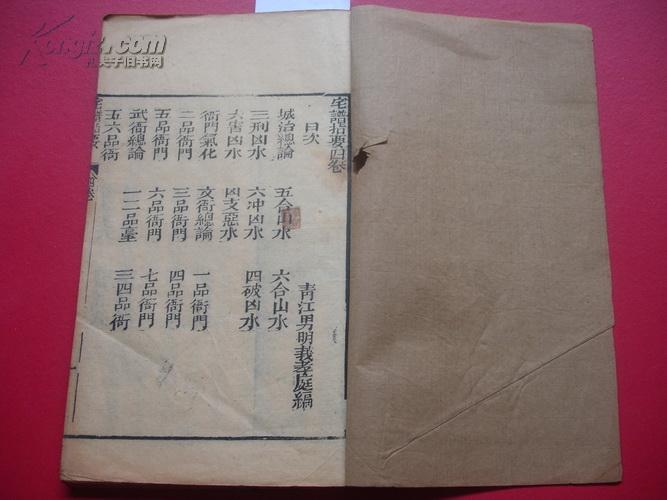 宅譜指要四卷
目次 青江男明義孝庭編
城治總論 五合山水 六合山水
三刑凶水 六冲凶水 四破凶水
六害凶水 凶支惡水
衙門氣化 文衙總論 一品衙門
二品衙門 三品衙門 四品衙門
五品衙門 六品衙門 七品衙門
武衙總論 一二品臺 三四品衙
五六品衙
宅譜指要 四卷
Kongfz.com
孔夫子旧书网